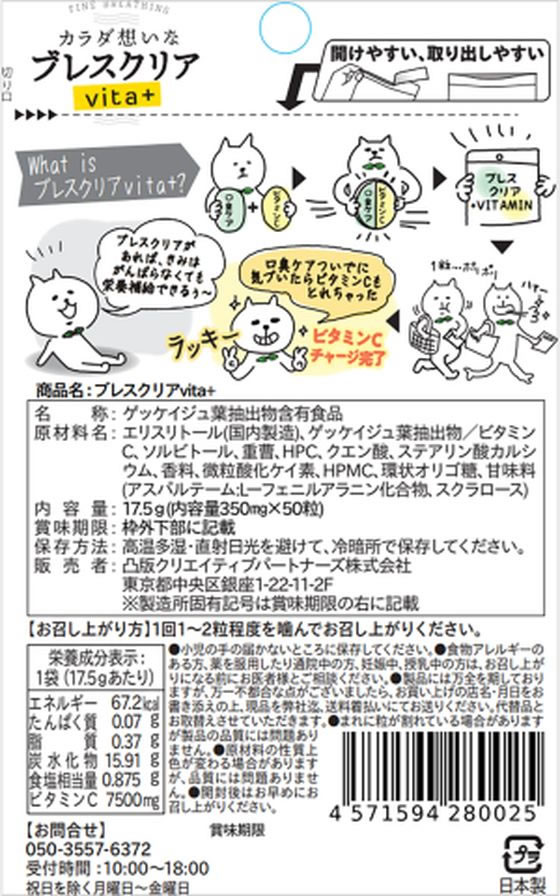 FINE BREATHING
カラダ想いな
ブレスクリア
vita+
切り口
開けやすい、取り出しやすい
What is
ブレスクリアvita+?
口臭ケア
+
ビタミンC
口臭ケア
ビタミンC
ブレス
クリア
+VITAMIN
ブレスクリアが
あれば、きみは
がんばらなくても
栄養補給できるぅ〜
口臭ケアついでに
気づいたらビタミンCも
とれちゃった
ラッキー
ビタミンC
チャージ完了
1粒…ポリポリ
ハァー
商品名:ブレスクリアvita+
名称:ゲッケイジュ葉抽出物含有食品
原材料名:エリスリトール(国内製造)、ゲッケイジュ葉抽出物/ビタミン
C、ソルビトール、重曹、HPC、クエン酸、ステアリン酸カルシ
ウム、香料、微粒酸化ケイ素、HPMC、環状オリゴ糖、甘味料
(アスパルテーム:L-フェニルアラニン化合物、スクラロース)
内容量:17.5g(内容量350mg×50粒)
賞味期限:枠外下部に記載
保存方法:高温多湿・直射日光を避けて、冷暗所で保存してください。
販売者:凸版クリエイティブパートナーズ株式会社
東京都中央区銀座1-22-11-2F
※製造所固有記号は賞味期限の右に記載
【お召し上がり方】1回1〜2粒程度を噛んでお召し上がりください。
栄養成分表示:
1袋(17.5gあたり)
エネルギー 67.2kcal
たんぱく質 0.07 g
脂質 0.37 g
炭水化物 15.91 g
食塩相当量 0.875 g
ビタミンC 7500mg
●小児の手の届かないところに保存してください。●食物アレルギーの
ある方、薬を服用したり通院中の方、妊娠中、授乳中の方は、お召し上が
りになる前にお医者様とご相談ください。●製品には万全を期しており
ますが、万一不都合な点がございましたら、お買い上げの店名・月日をお
書き添えの上、現品を弊社迄、送料着払いにてお送りください。代替品と
お取替えさせていただきます。●まれに粒が割れている場合があります
が製品の品質には問題あり
ません。●原材料の性質上
色が変わる場合があります
が、品質には問題ありませ
ん。●開封後はお早めにお
召し上がりください。
4 571594 280025
【お問合せ】
050-3557-6372
受付時間:10:00〜18:00
祝日を除く月曜日〜金曜日
賞味期限
プラ
日本製